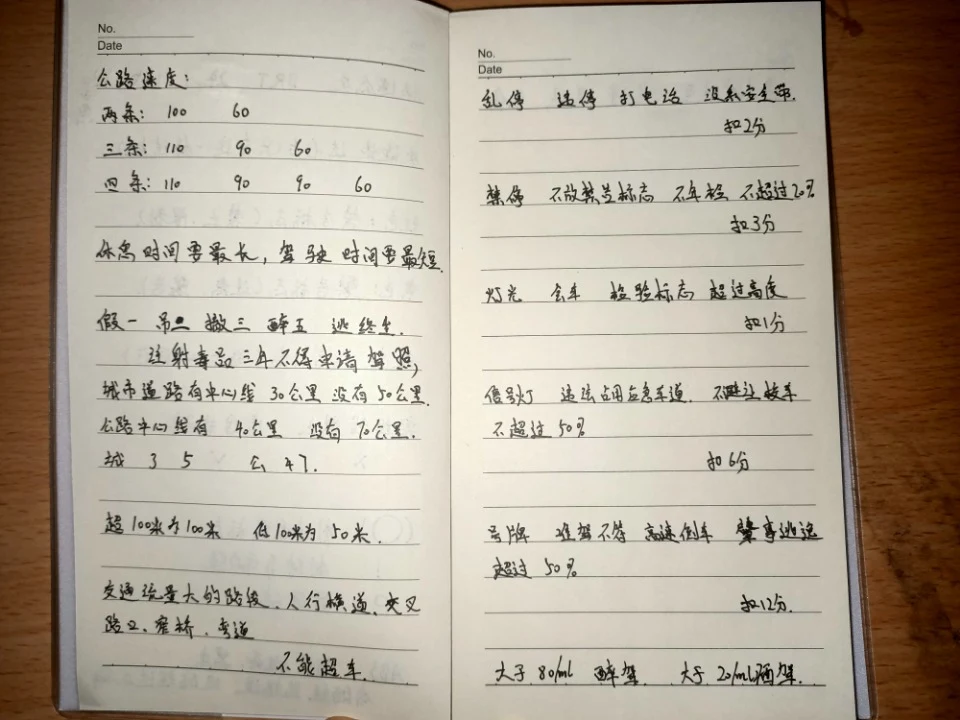 No.
Date
公路速度:
两条: 100 60
三条: 110 90 60
四条: 110 90 90 60
休息时间要最长, 驾驶时间要最短.
假一 吊二 撤三 醉五 逃终生.
注射毒品三年不得申请驾照,
城市道路有中心线 30公里 没有50公里.
公路中心线有 40公里 没有 70公里.
城 3 5 公 47.
超100米为100米 低100米为50米.
交通流量大的路段、人行横道、交叉
路口、窄桥、弯道
不能超车.
No.
Date
乱停 违停 打电话 没系安全带.
扣2分
禁停 不放禁告标志 不年检 不超过20%
扣3分
灯光 会车 检验标志 超过高度
扣1分
信号灯 违法占用应急车道. 不避让校车
不超过50%
扣6分
号牌 准驾不符 高速倒车 肇事逃逸
超过50%
扣12分.
大于80/ml 醉驾 大于20/ml酒驾.